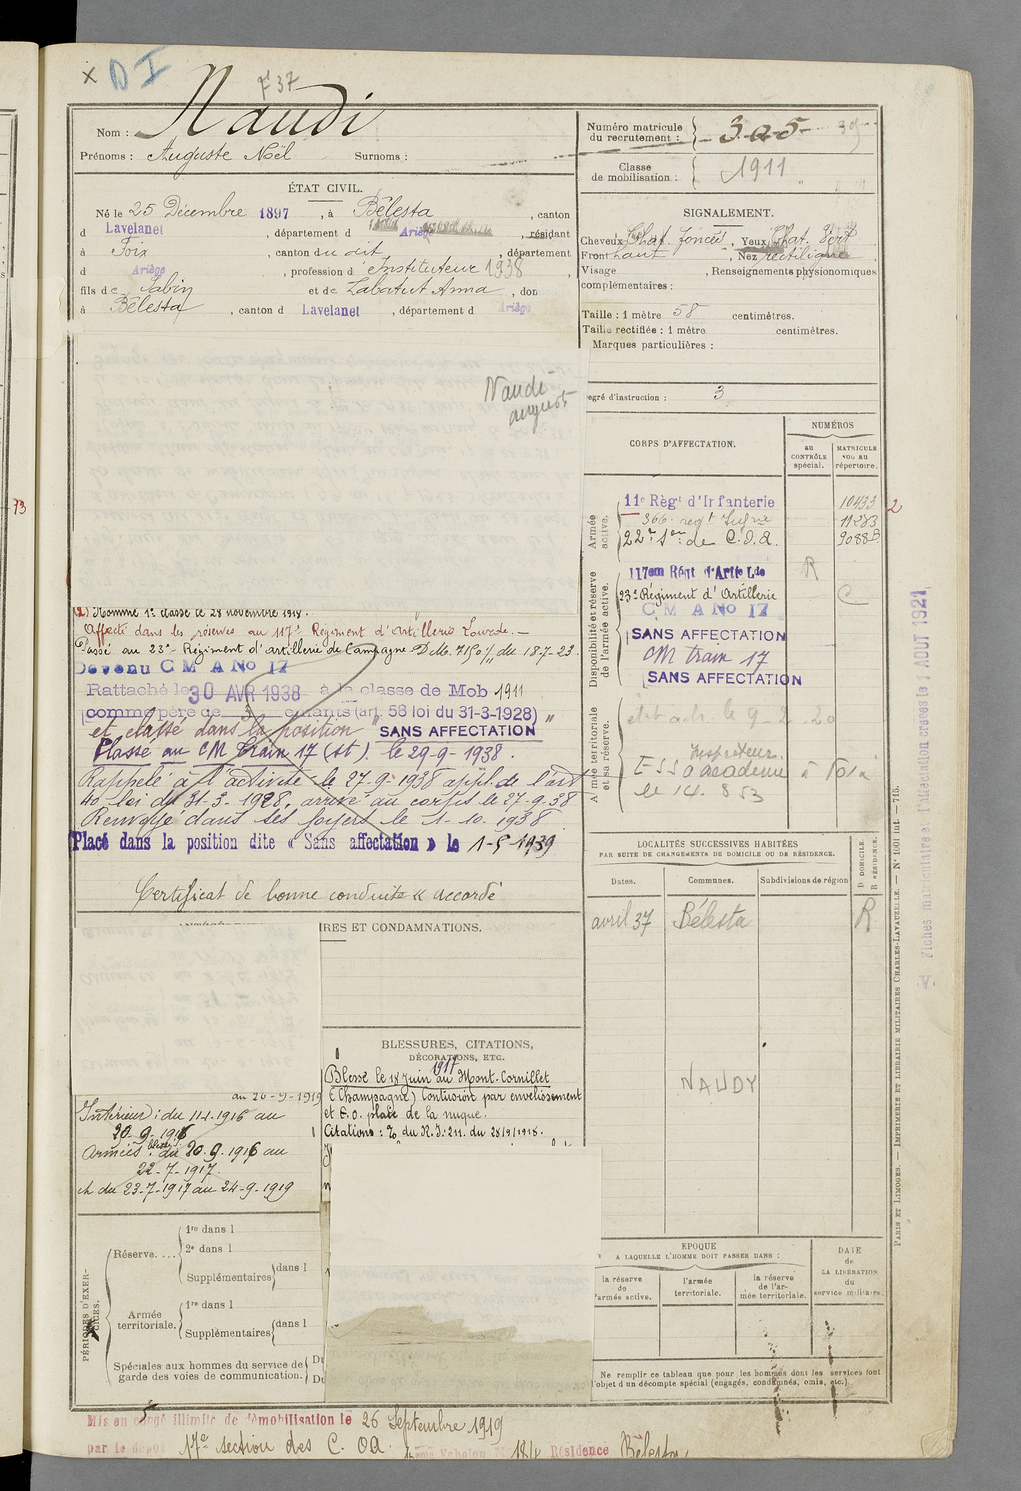 X D I
F 37
Nom : Naudi
Prénoms : Auguste Noël Surnoms :
Numéro matricule du recrutement : 305
Classe de mobilisation : 1911
ÉTAT CIVIL.
Né le 25 Décembre 1897, à Bélesta, canton
d Lavelanet, département d Ariège, résidant
à Foix, canton du dit, département
d Ariège, profession d Instituteur 1938
fils de Fabin et de Labatut Anna, don
à Bélesta, canton d Lavelanet, département d Ariège
SIGNALEMENT.
Cheveux Chat. foncés, Yeux Chat. Vert
Front haut, Nez rectiligne
Visage , Renseignements physionomiques
complémentaires :
Taille : 1 mètre 58 centimètres.
Taille rectifiée : 1 mètre centimètres.
Marques particulières :
egré d'instruction : 3
Naudi
august
CORPS D'AFFECTATION.
NUMÉROS
AU CONTRÔLE spécial.
MATRICULE OU AU répertoire.
73
Armée active.
11e Régt d'Infanterie 10433 2
366e regt Infrie 11283
22e Son de C.O.A. 9088B
Disponibilité et réserve de l'armée active.
117em Régt d'Artie Lde R
23e Régiment d'Artillerie C
C M A No 17
SANS AFFECTATION
CM train 17
SANS AFFECTATION
Armée territoriale et sa réserve.
le 9-2-20
Inspecteur
académie à Foix
le 14.8 53
(1) Nommé 1e classe le 28 novembre 1918.
Affecté dans les réserves au 117e Régiment d'Artillerie Lourde. —
Passé au 23e Régiment d'artillerie de Campagne DM. 7150 du 18-7-23
Devenu C M A No 17
Rattaché le 30 AVR 1938 à la classe de Mob 1911
comme père de 3 enfants (art. 58 loi du 31-3-1928)
et classé dans la position "SANS AFFECTATION"
Classé au CM train 17 (st). le 29-9-1938.
Rappelé à l'activité le 27-9-1938 appl. de l'art
40 loi du 31-3-1928, arrivé au corps le 27-9-38
Renvoyé dans ses foyers le 1-10-1938
Placé dans la position dite « Sans affectation » le 1-5-1939
Certificat de bonne conduite « accordé
IRES ET CONDAMNATIONS.
LOCALITÉS SUCCESSIVES HABITÉES
PAR SUITE DE CHANGEMENTS DE DOMICILE OU DE RÉSIDENCE.
Dates. Communes. Subdivisions de région D DOMICILE. R RÉSIDENCE.
avril 37 Bélesta R
NAUDY
BLESSURES, CITATIONS,
DÉCORATIONS, ETC.
Blessé le 18 Juin 1917 au Mont-Cornillet
(Champagne) Contusion par enveloissement
et E.O. plaie de la nuque.
Citations : O. du R.I: 211. du 28/9/1918.
au 26-9-1919
Intérieur : du 11-4-1916 au
20-9-1916
Armées : du 20.9.1916 au
22-7-1917.
ch du 23-7-1917 au 24-9-1919
PÉRIODES D'EXERCICES.
Réserve. ... 1re dans l
2e dans l
Supplémentaires dans l
Armée territoriale. 1re dans l
Supplémentaires dans l
Spéciales aux hommes du service de garde des voies de communication. Du
Du
EPOQUE
A LAQUELLE L'HOMME DOIT PASSER DANS :
la réserve de l'armée active.
l'armée territoriale.
la réserve de l'armée territoriale.
DATE de LA LIBÉRATION du service militaire.
Ne remplir ce tableau que pour les hommes dont les services font
l'objet d'un décompte spécial (engagés, condamnés, omis, etc.).
Mis en congé illimité de démobilisation le 26 Septembre 1919
par le dépôt 17e section des C. OA Résidence Bélesta
PARIS ET LIMOGES. — IMPRIMERIE ET LIBRAIRIE MILITAIRES CHARLES-LAVAUZELLE. — No 1001 int. — 715.
Fiches matriculaire et d'affectation créées le 1 AOUT 1921